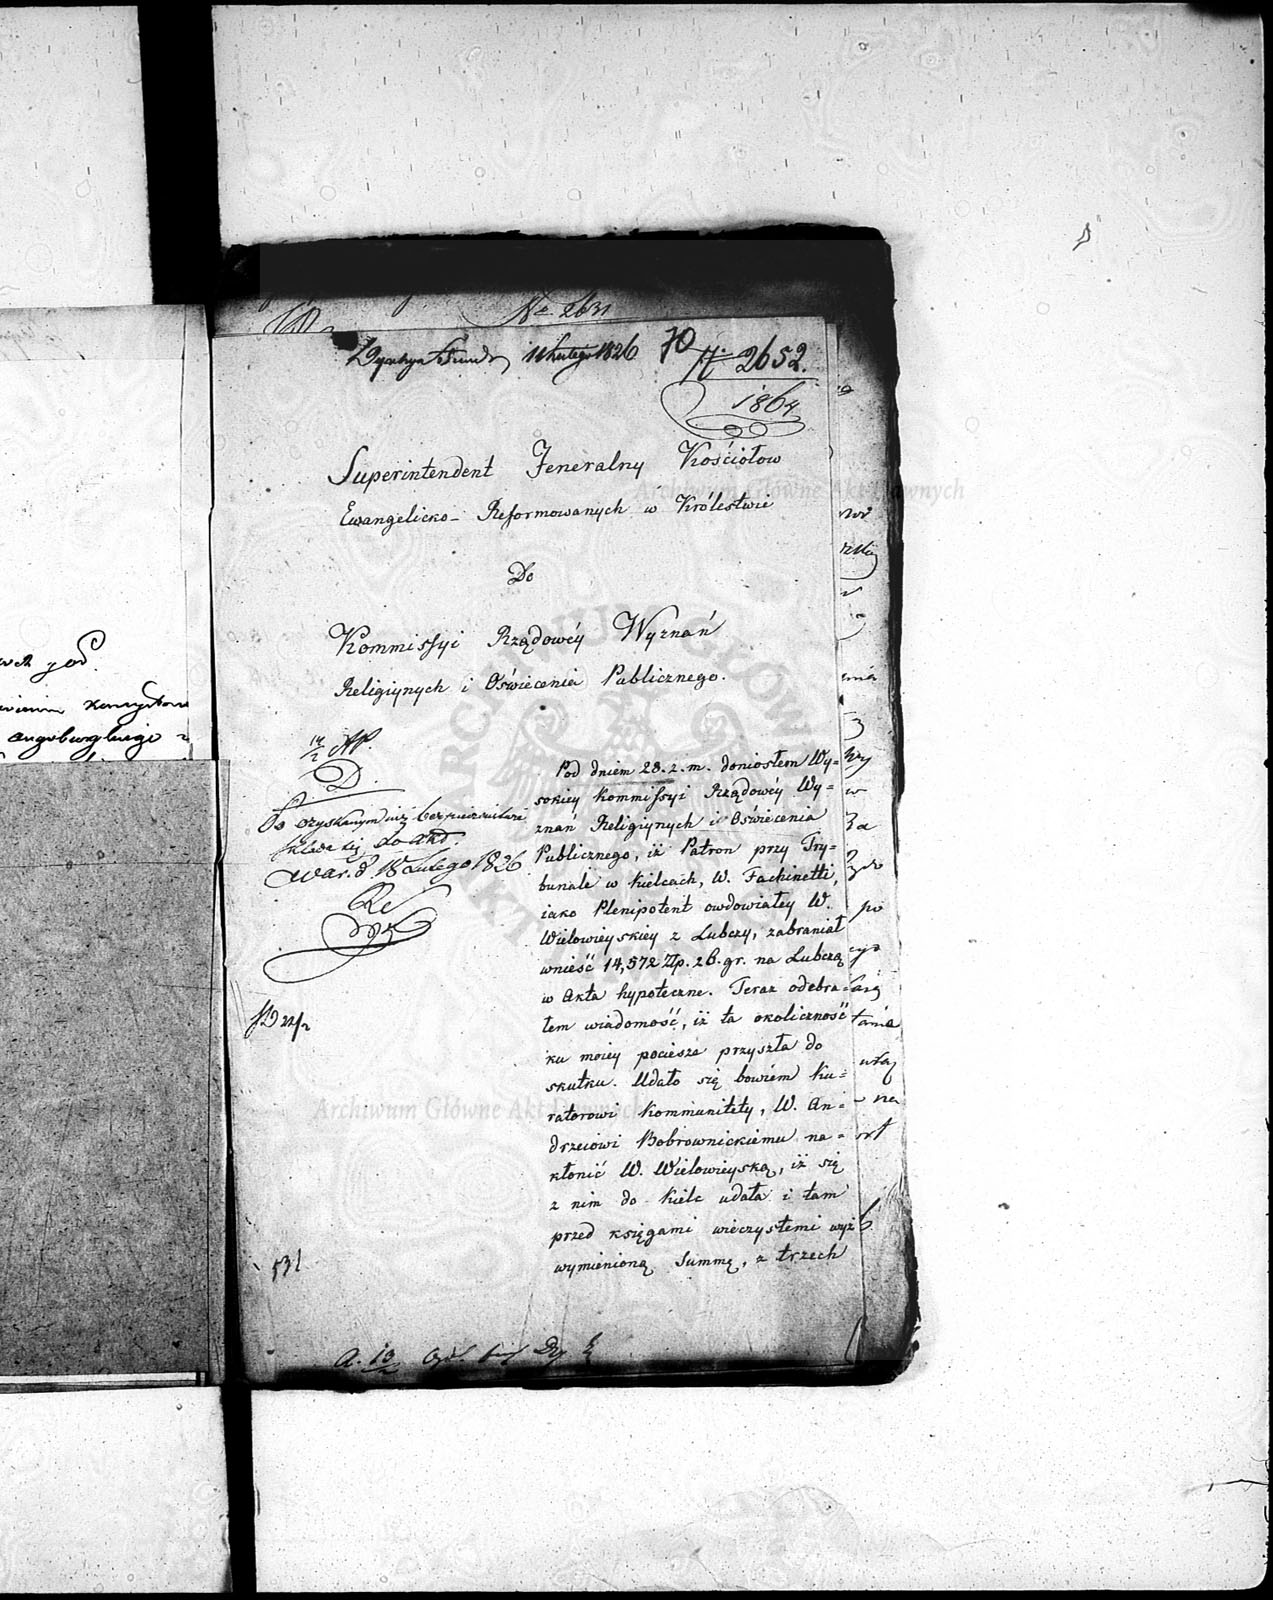 No 2631
11 Lutego 1826
70
N: 2652.
1864
Superintendent Jeneralny Kościołow
Ewangelicko- Reformowanych w Królestwie
Do
Kommissyi Rządowéy Wyznań
Religiynych i Oświecenia Publicznego.
14/2
D.
Po ozyskanym już bezpieczeństwie
składa się do akt.
War. d 18 Lutego 1826
Pod dniem 28. z. m. doniosłem Wy=
sokiey Kommissyi Rządowéy Wy=
znań Religiynych i Oświecenia
Publicznego, iż Patron przy Try=
bunale w Kielcach, W. Fachinetti,
iako Plenipotent owdowiałey W.
Wielowieyskiey z Lubczy, zabraniał
wnieść 14,572 Złp. 26. gr. na Lubczą
w Akta hypoteczne. Teraz odebra=
łem wiadomość, iż ta okoliczność
ku moiey pociesze przyszła do
skutku. Udało się bowiem Ku=
ratorowi Kommunitety, W. An=
drzeiowi Bobrownickiemu na=
kłonić W. Wielowieyską, iż się
z nim do Kielc udała i tam
przed księgami wieczystemi wyż
wymienioną Summę, z trzech
531
a. 10
Archiwum Główne Akt Dawnych
Archiwum Główne Akt Dawnych